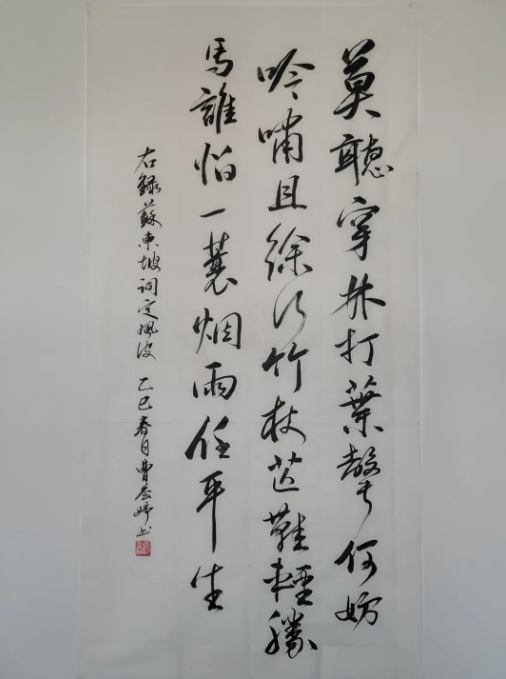 莫聽穿林打葉聲何妨
吟嘯且徐行竹杖芒鞋輕勝
馬誰怕一蓑烟雨任平生
右錄蘇東坡詞定風波 乙巳春月曹婷书